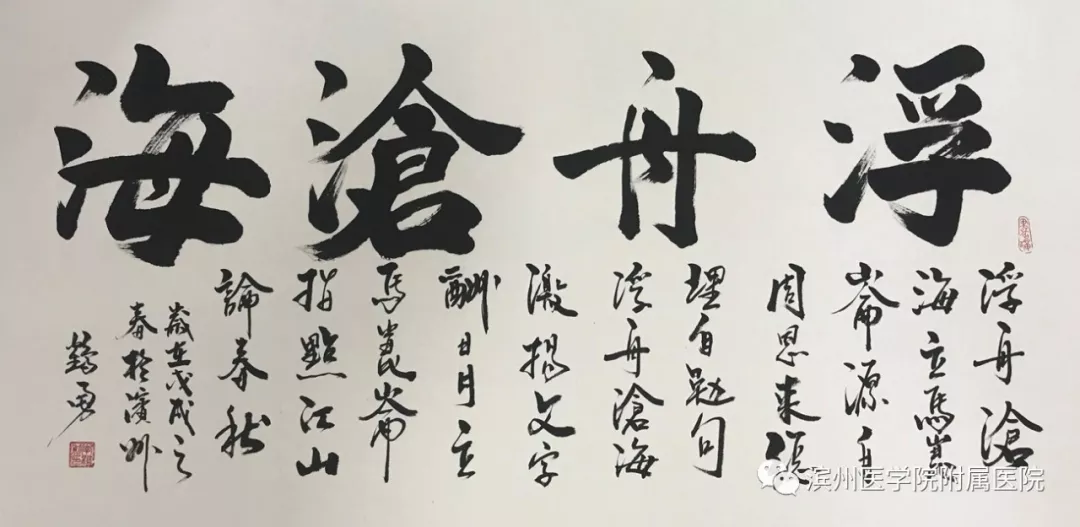 浮舟滄海
浮舟滄
海立馬崑
崙源自
周恩來張
自題句
浮舟滄海
激揚文字
酬日月立
馬崑崙
指點江山
論春秋
歲在戊戌之
春於濱州
滨州医学院附属医院